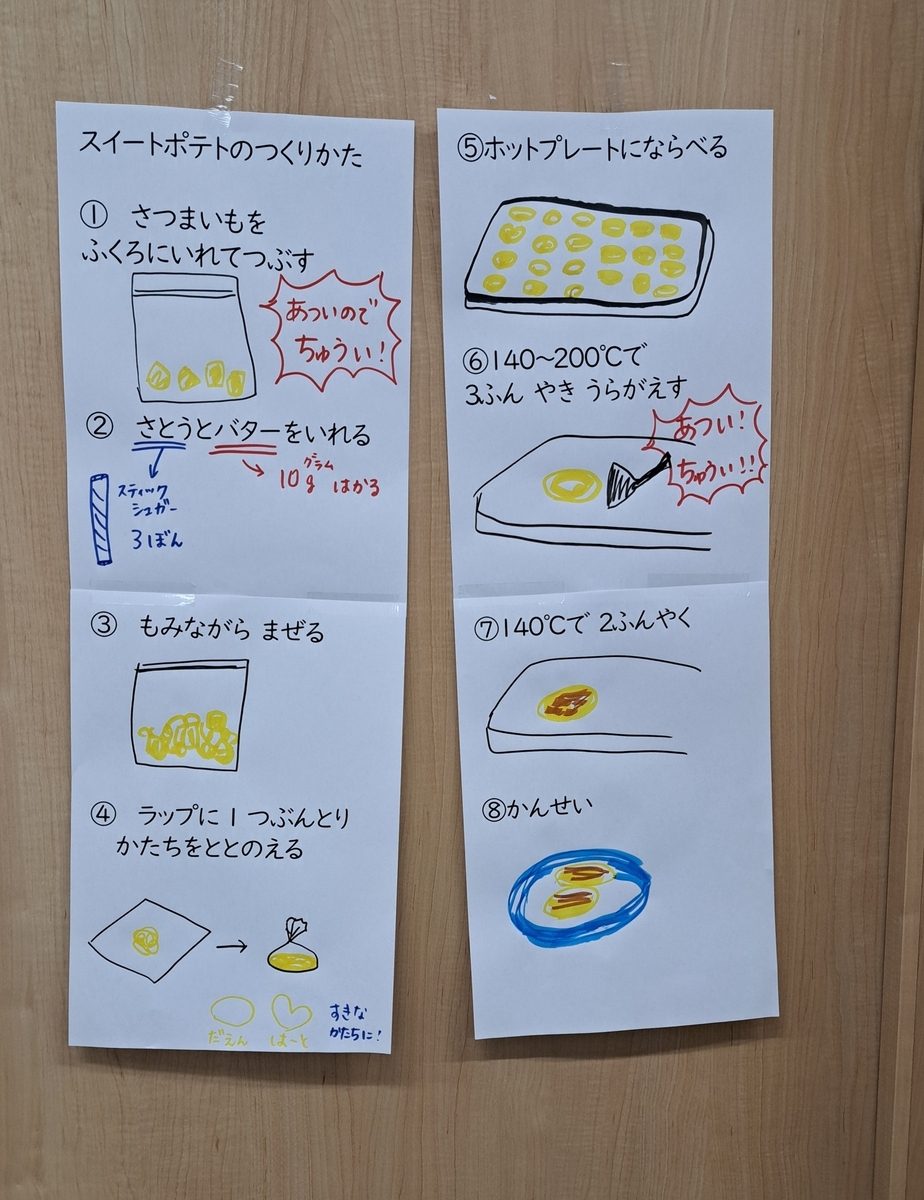 スイートポテトのつくりかた
① さつまいもを
ふくろにいれてつぶす
あついので
ちゅうい!
② さとうとバターをいれる
スティック
シュガー
3ぼん
グラム
10g はかる
③ もみながら まぜる
④ ラップに 1 つぶんとり
かたちをととのえる
だえん
はーと
すきな
かたちに!
⑤ホットプレートにならべる
⑥140~200℃で
3ふん やき うらがえす
あつい!
ちゅうい!!
⑦140℃で 2ふんやく
⑧かんせい